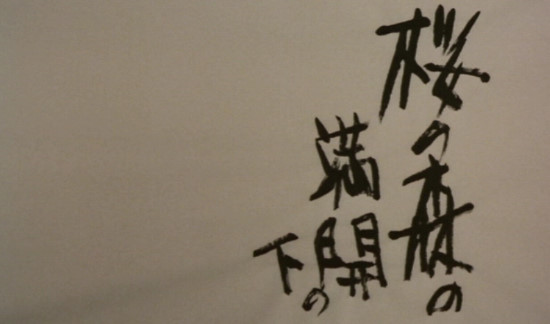 桜の森の
満開の
下